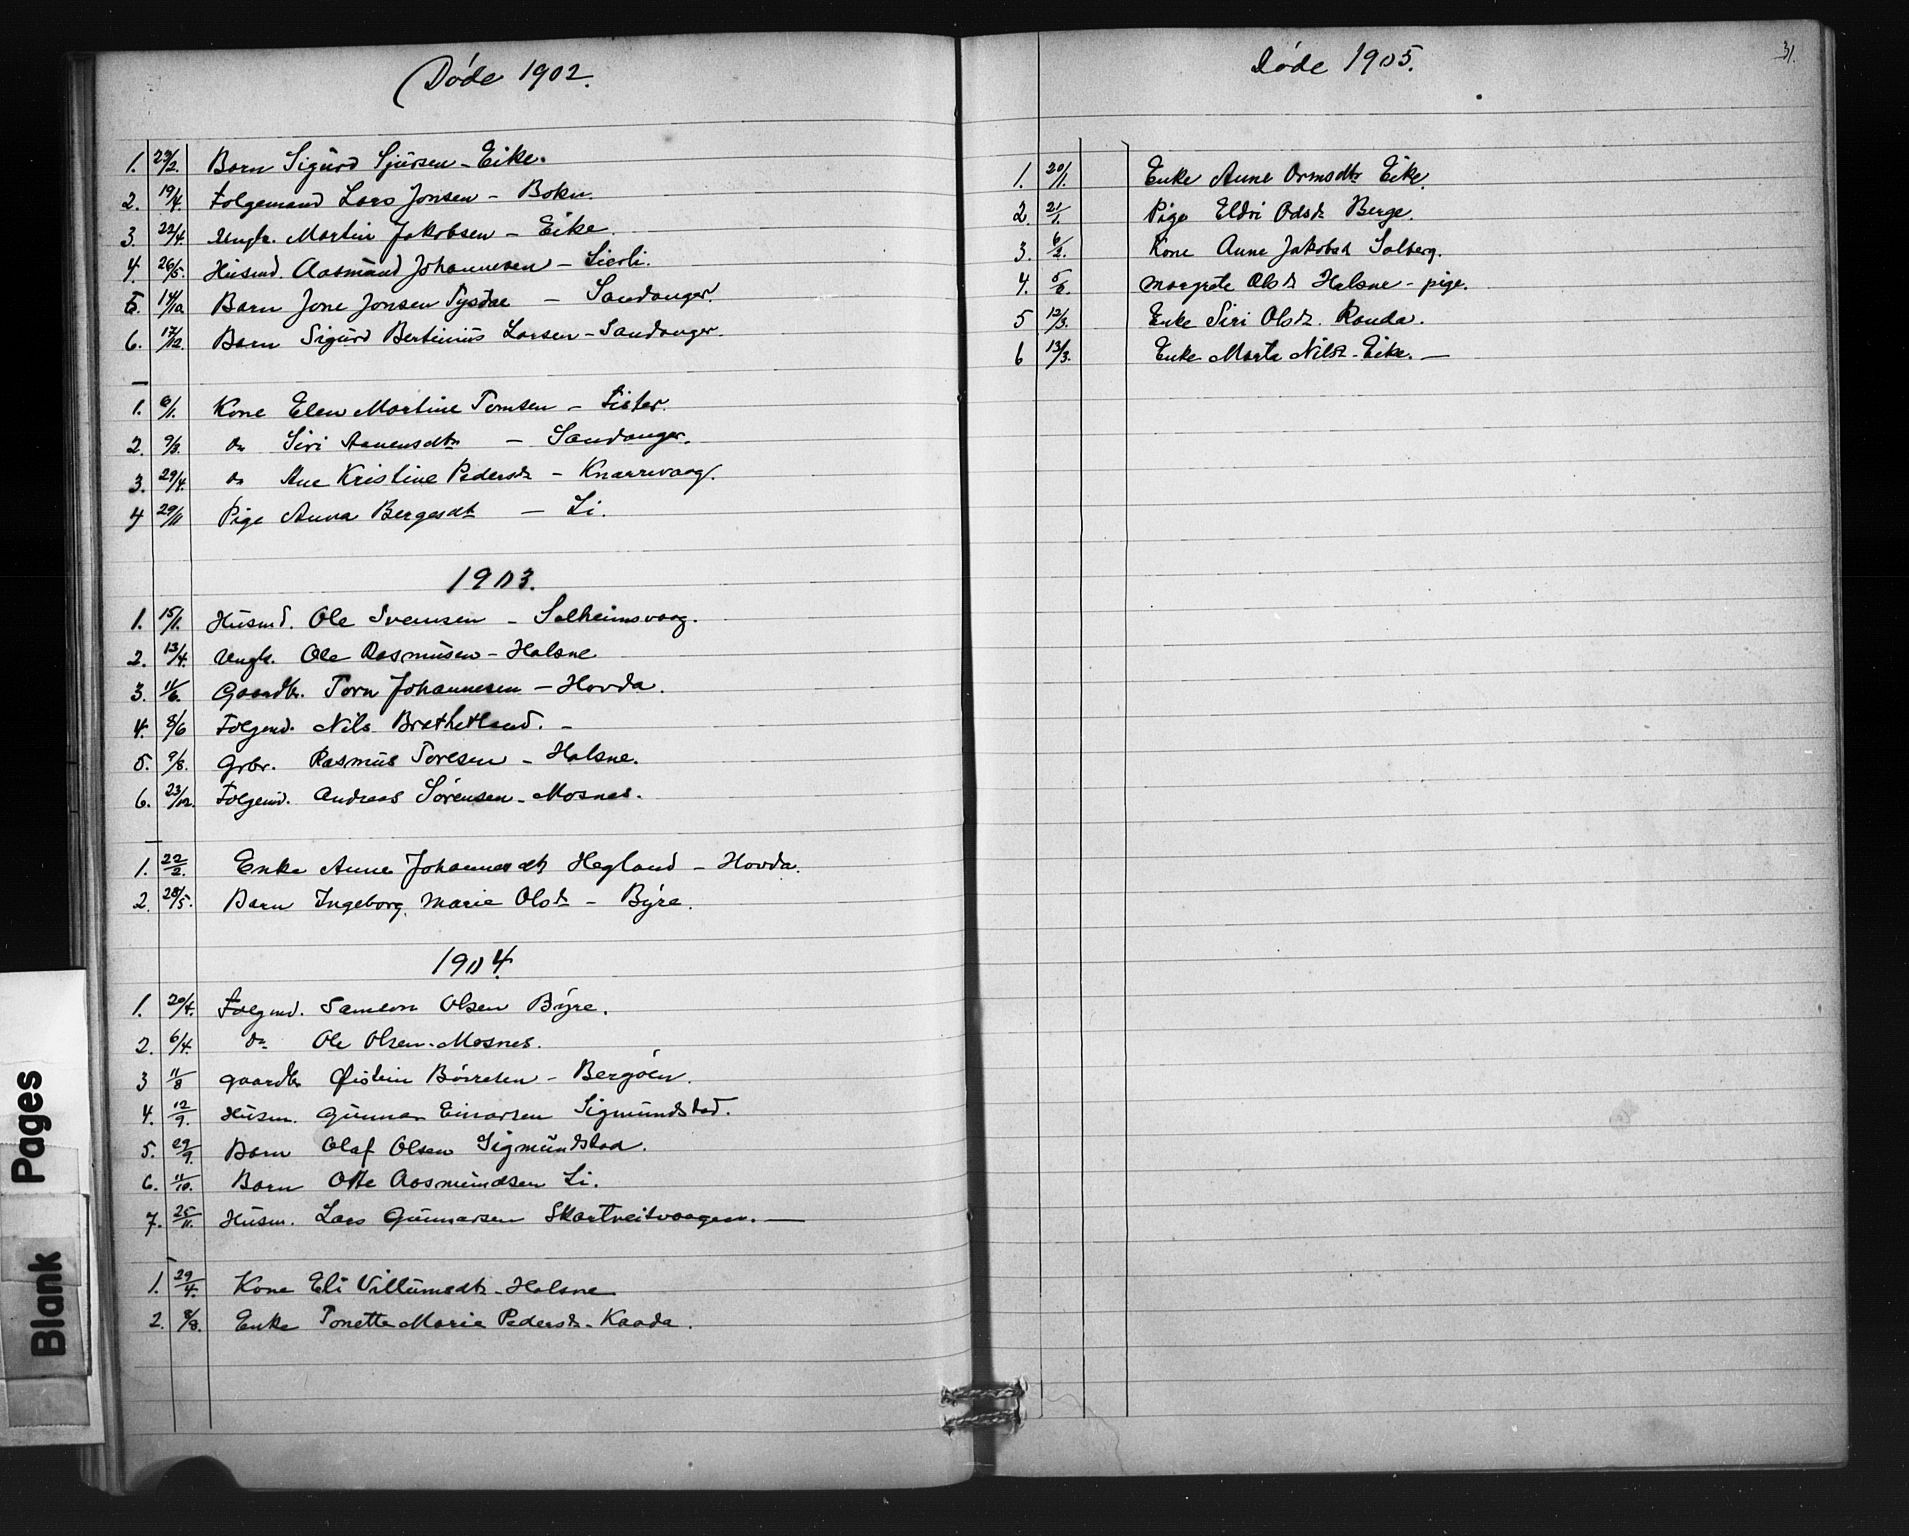 Døde 1902.
1. 23/2. Barn Sigurd Sjursen - Eike.
2. 19/4. Folgemand Lars Jonsen - Bokn.
3. 22/4. Ungk. Martin Jakobsen - Eike.
4. 26/5. Husmd. Aasmund Johannesen - Lierli.
5. 14/10 Barn Jone Jonsen Tysdal - Sandanger.
6. 17/12. Barn Sigurd Bertinius Larsen - Sandanger.
1. 6/1. Kone Elen Martine Tomsen - Lister.
2. 9/3. do Siri Aanensdtr - Sandanger.
3. 29/4. do Ane Kristine Pedersdr - Knarrevaag.
4 29/11 Pige Anna Bergesdt - Li.
1903.
1. 15/1. Husmd. Ole Svensen - Solheimsvaag.
2. 13/4. Ungk. Ole Rasmusen - Halsne
3. 11/6. Gaardbr. Torn Johannesen - Hovda.
4. 8/6 Folgemd. Nils Brathetland. -
5. 9/8. Grbr. Rasmus Toresen - Halsne.
6. 23/12. Folgemd. Andreas Sørensen - Mosnes.
1. 22/2. Enke Anne Johannesdt Hegland - Hovda.
2. 28/5. Barn Ingeborg Marie Olsdr - Byre.
1904
1. 20/4. Folgmd. Samson Olsen Byre.
2. 6/4. do Ole Olsen - Mosnes.
3 11/8 gaardbr Øistein Børresen - Bergøen.
4. 12/9. Husm. Gunnar Einarsen Sigmundstad.
5. 29/9. Barn Olaf Olsen Sigmundstad.
6. 11/10. Barn Otte Aasmundsen Li.
7. 25/11. Husm. Lars Gunnarsen Skartveitvaagen. —
1. 29/4. Kone Eli Villumsdtr - Halsne
2. 8/8. Enke Tonette Marie Pedersdr - Kaada.
Døde 1905.
31.
1. 20/1. Enke Anne Ormsdtr Eike.
2 21/1. Pige Eldri Odsdr Berge.
3. 6/2. Kone Anne Jakobsd Solberg.
4. Margrete Olsdr Halsne - pige.
5 12/3. Enke Siri Olsdr. Randa.
6 13/3. Enke Marta Nilsdr - Eike. —
Pages
Blank